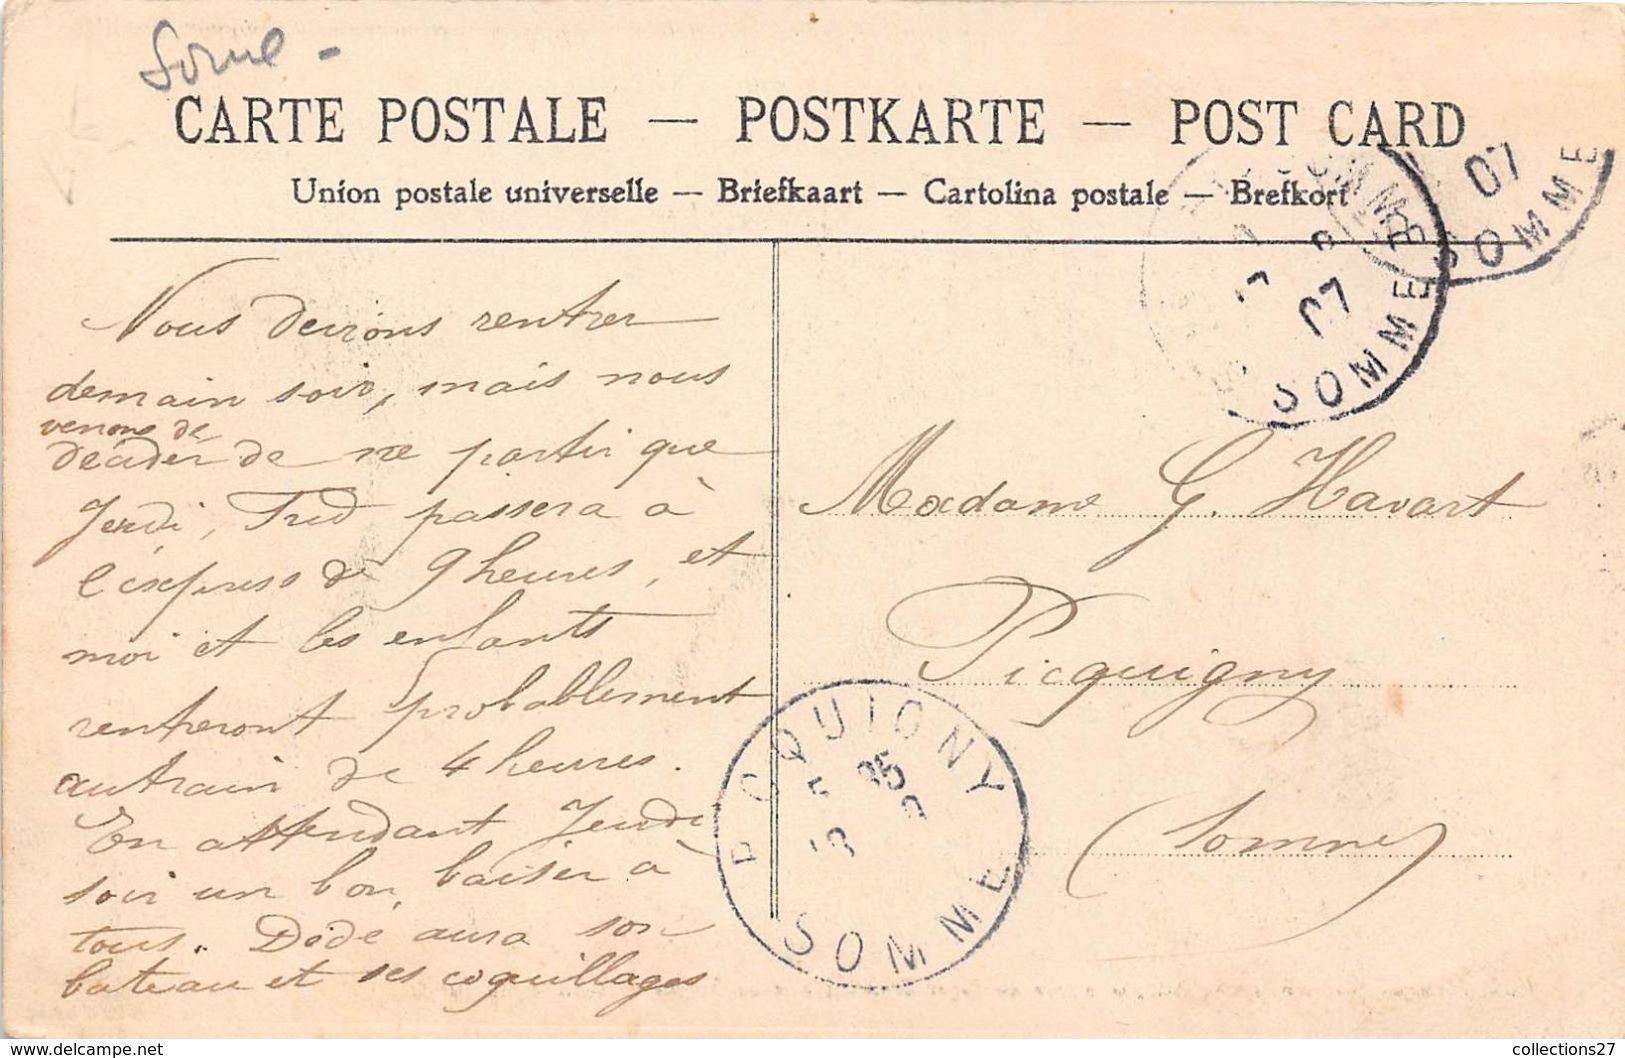 Somme -
CARTE POSTALE — POSTKARTE — POST CARD
Union postale universelle — Briefkaart — Cartolina postale — Brefkort
07
SOMME
07
SOMME
Nous devions rentrer
demain soir, mais nous
venons de
décider de ne partir que
Jeudi, Fred passera à
l'express de 9 heures, et
moi et les enfants
rentreront probablement
au train de 4 heures.
En attendant Jeudi
soir un bon baiser à
tous. Dédé aura son
bateau et ses coquillages
Madame G. Havart
Picquigny
(Somme)
PICQUIGNY
SOMME
collections27